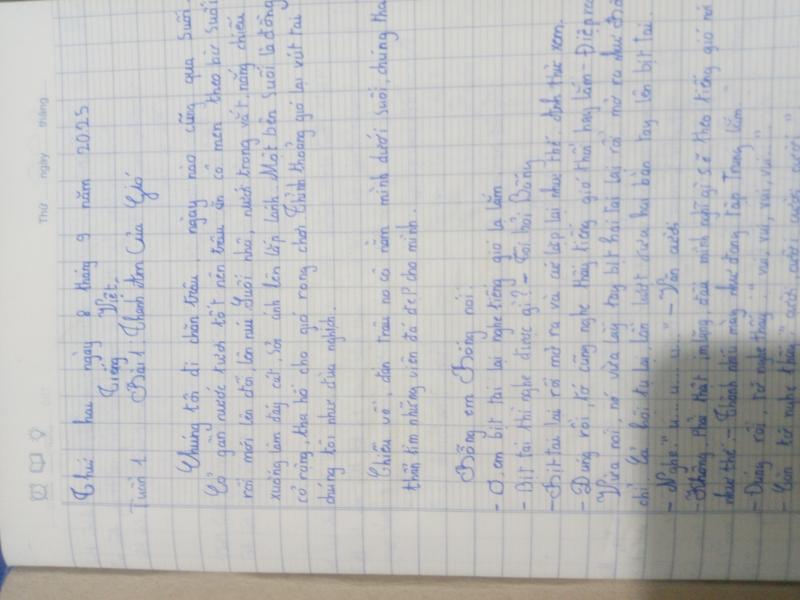 Thứ ngày tháng
Thứ hai ngày 8 tháng 9 năm 2025
Tiếng Việt
Tuần 1 Bài 1 Thanh âm Của Gió
Chúng tôi đi chăn trâu, ngày nào cũng qua suối.
Cỏ gần nước tươi tốt nên trâu ăn cỏ men theo bờ suối
rồi mới lên đồi, lên núi. Suối nhỏ, nước trong vắt, nắng chiếu
xuống làm đáy cát, sỏi ánh lên lấp lánh. Một bên suối là đồng
cỏ rộng, tha hồ cho gió rong chơi. Thỉnh thoảng gió lại vút tai
chúng tôi như đùa nghịch.
Chiều về, đàn trâu no cỏ nằm mình dưới suối, chúng tha
thẩn tìm những viên đá đẹp cho mình.
Bống em Bống nói
- Ơ, em bịt tai lại nghe tiếng gió lạ lắm.
- Bịt tai thì nghe được gì? - Tôi hỏi Bống
- Bịt tai lại rồi mở ra và cứ lặp lại như thế. Anh thử xem.
- Đúng rồi, tớ cũng nghe thấy tiếng gió thổi hay lắm - Điệp
Vừa nói, nó vừa lấy tay bịt hai tai lại rồi mở ra như
chỉ lại hội tụ lại, lần lượt đưa hai bàn tay lên bịt tai.
- Nghe "u... u... u... u..." - Văn cười
- Không. Phải thật im lặng, đầu mình nghĩ gì sẽ theo tiếng gió
như thế - Thành nhíu mày như đang tập Trung lắm
- Đúng rồi, tớ nghe thấy: "vui, vui, vui, vui,..."
- Còn tớ nghe thấy: "cười, cười, cười, cười, cười"